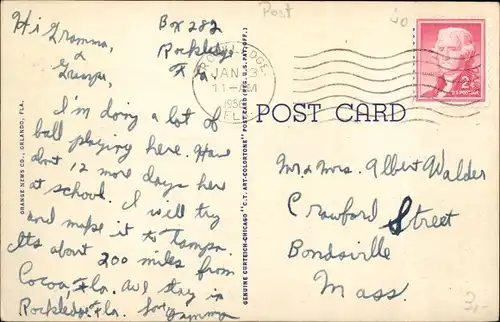 Hi Gramma,
&
Grampa,
Box 282
Rockledge
Fla
I'm doing a lot of
ball playing here. Have
about 12 more days here
at school. I will try
and make it to Tampa.
Its about 200 miles from
Cocoa, Fla. We stay in
Rockledge, Fla. Love
Post
ROCKLEDGE
JAN 3
11-AM
FLA
2¢
U.S. POSTAGE
POST CARD
Mr & Mrs. Albert Walder
Crawford Street
Bondsville
Mass.
ORANGE NEWS CO., ORLANDO, FLA.
GENUINE CURTEICH-CHICAGO "C.T. ART-COLORTONE" POST CARD (REG. U.S. PAT. OFF.)